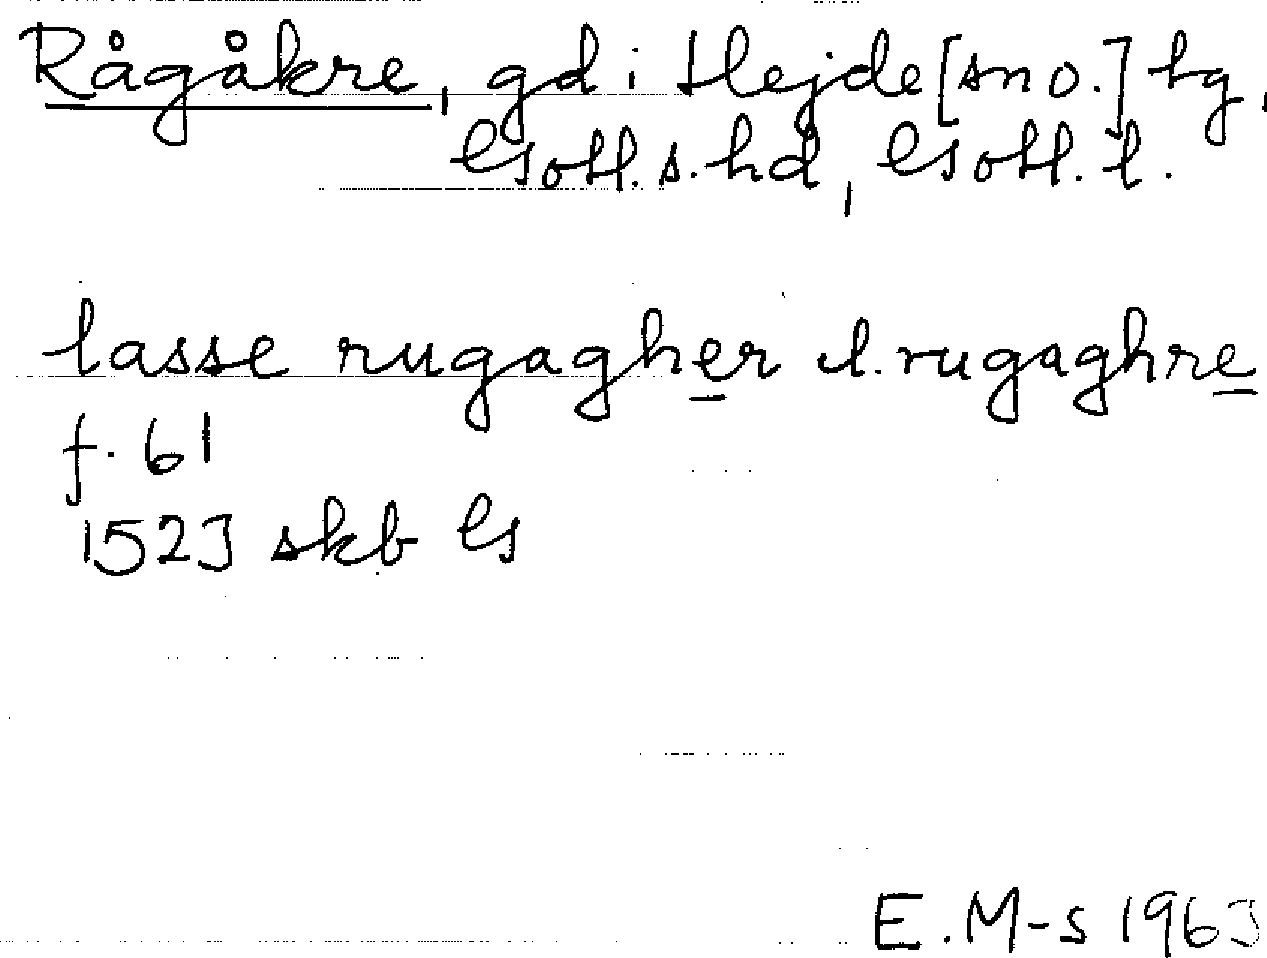 Rågåkre, gd i Hejde [sn o.] tg,
Gotl. s. hd, Gotl. l.
lasse rugagher l. rugaghre
f. 61
1523 skb G
E. M-s 1963